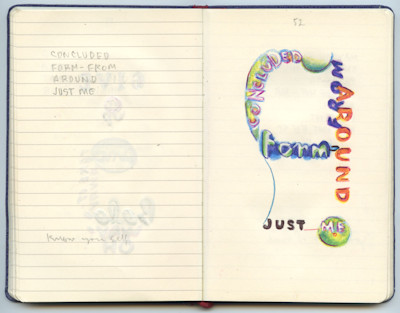 CONCLUDED
FORM-FROM
AROUND
JUST ME
Know your self
52.
CONCLUDED
AROUND
form-
JUST ME